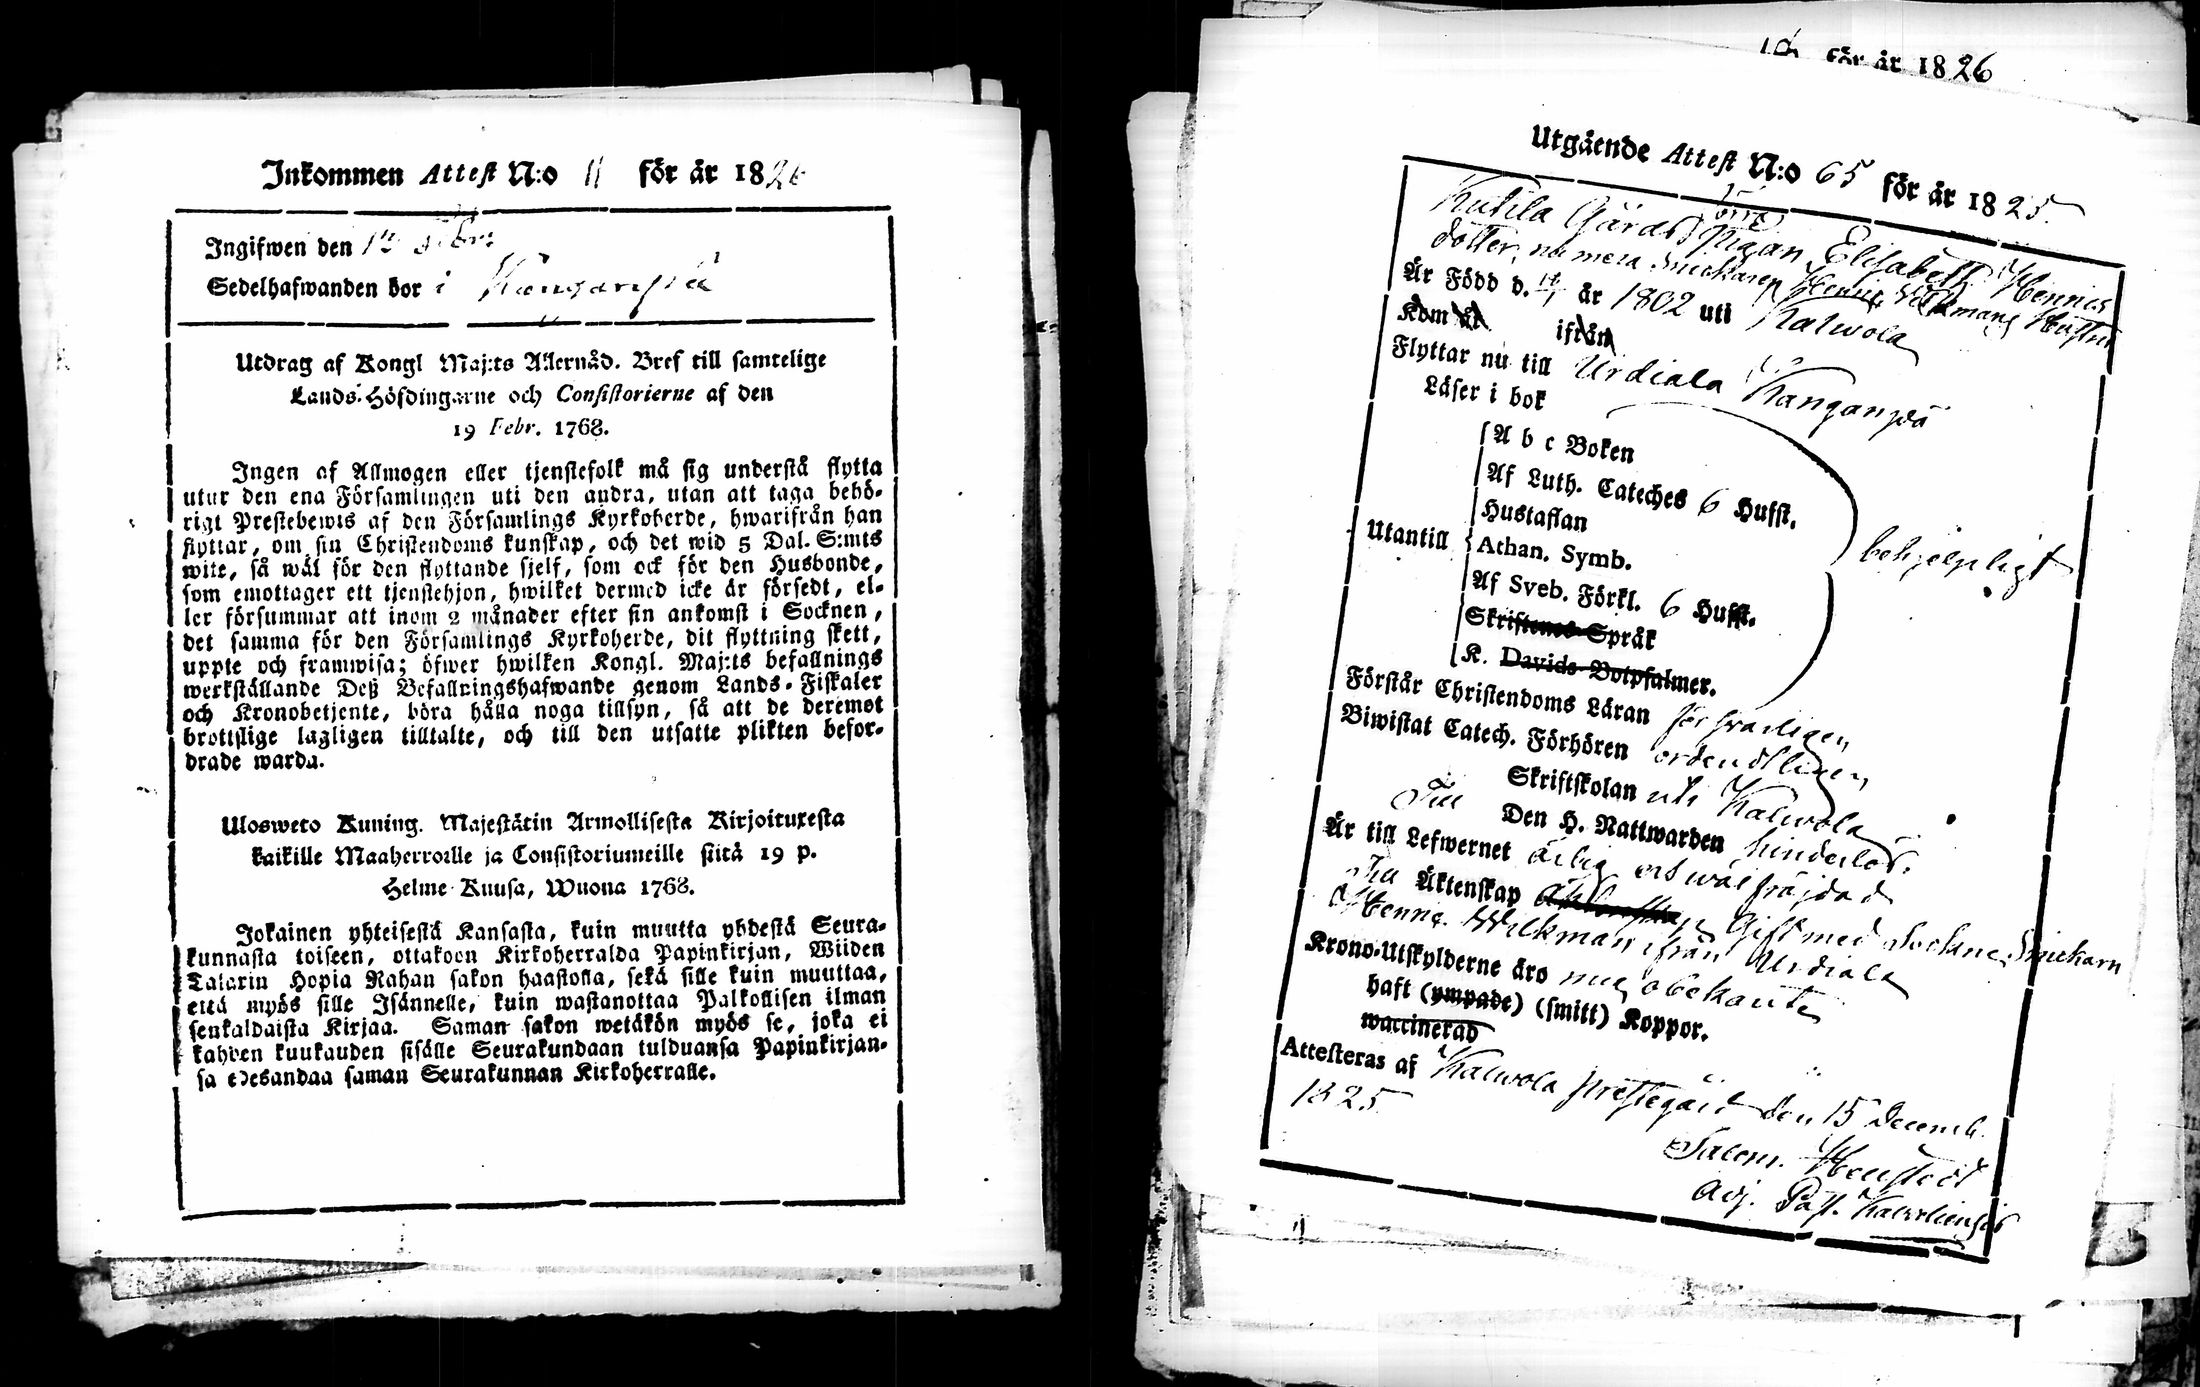 Inkommen Attest N:o 11 för år 1826
Ingifwen den 12 Febr:
Sedelhafwanden bor i Kanganpää
Utdrag af Kongl Maj:ts Allernåd. Bref till samtelige
Lands-Höfdingarne och Consistorierne af den
19 Febr. 1768.
Ingen af Allmogen eller tjenstefolk må sig understå flytta
utur den ena Församlingen uti den andra, utan att taga behö-
rigt Prestebewis af den Församlings Kyrkoherde, hwarifrån han
flyttar, om sin Christendoms kunskap, och det wid 5 Dal. S:mts
wite, så wäl för den flyttande sjelf, som ock för den Husbonde,
som emottager ett tjenstehjon, hwilket dermed icke är försedt, el-
ler försummar att inom 2 månader efter sin ankomst i Socknen,
det samma för den Församlings Kyrkoherde, dit flyttning skett,
uppte och framwisa; öfwer hwilken Kongl. Maj:ts befallnings
werkställande Deß Befallningshafwande genom Lands-Fiskaler
och Kronobetjente, böra hålla noga tillsyn, så att de deremot
brottslige lagligen tilltalte, och till den utsatte plikten befor-
drade warda.
Ulosweto Kuning. Majestätin Armollisesta Kirjoituxesta
kaikille Maaherroille ja Consistoriumeille siitä 19 p.
Helme-Kuusa, Wuona 1768.
Jokainen yhteisestä Kansasta, kuin muutta yhdestä Seura-
kunnasta toiseen, ottakoon Kirkoherralda Papinkirjan, Wiiden
Talarin Hopia Rahan sakon haastolla, sekä sille kuin muuttaa,
että myös sille Isännelle, kuin wastanottaa Palkollisen ilman
senkaldaista Kirjaa. Saman sakon wetäkön myös se, joka ei
kahden kuukauden sisälle Seurakundaan tulduansa Papinkirjan-
sa edesandaa saman Seurakunnan Kirkoherralle.
för år 1826
Utgående Attest N:o 65 för år 1825.
förra
Kutila Gårds Pigan Elisabeth Hennes
dotter, numera Snickaren Henric Wilkmans Hustru
Är Född d. år 1802 uti Kalwola
Kom år ifrån
Flyttar nu till Urdiala Kanganpää
Läser i bok
A b c Boken
Af Luth. Cateches 6 Hufst.
Hustaflan
Utantill Athan. Symb. behjelpligt
Af Sveb. Förkl. 6 Hufst.
Skriftenes Språk
K. Davids Botpsalmer.
Förstår Christendoms Läran försvarligen
Biwistat Catech. Förhören ordentligen
Skriftskolan uti Kalwola
Till Den H. Nattwarden hinderlös.
Är till Lefwernet ärlig och wäl fräjdad
Till Äktenskap Gift med Sockne Snickarn
Henric Wilkman ifrån Urdiala
Krono-Utskylderne äro mig obekante
haft (ympade) (smitt) Koppor.
waccinerad
Attesteras af Kalwola Prestegård den 15 Decemb.
1825.
Salom. Henstedt
Adj. Past. Kalvoliensis